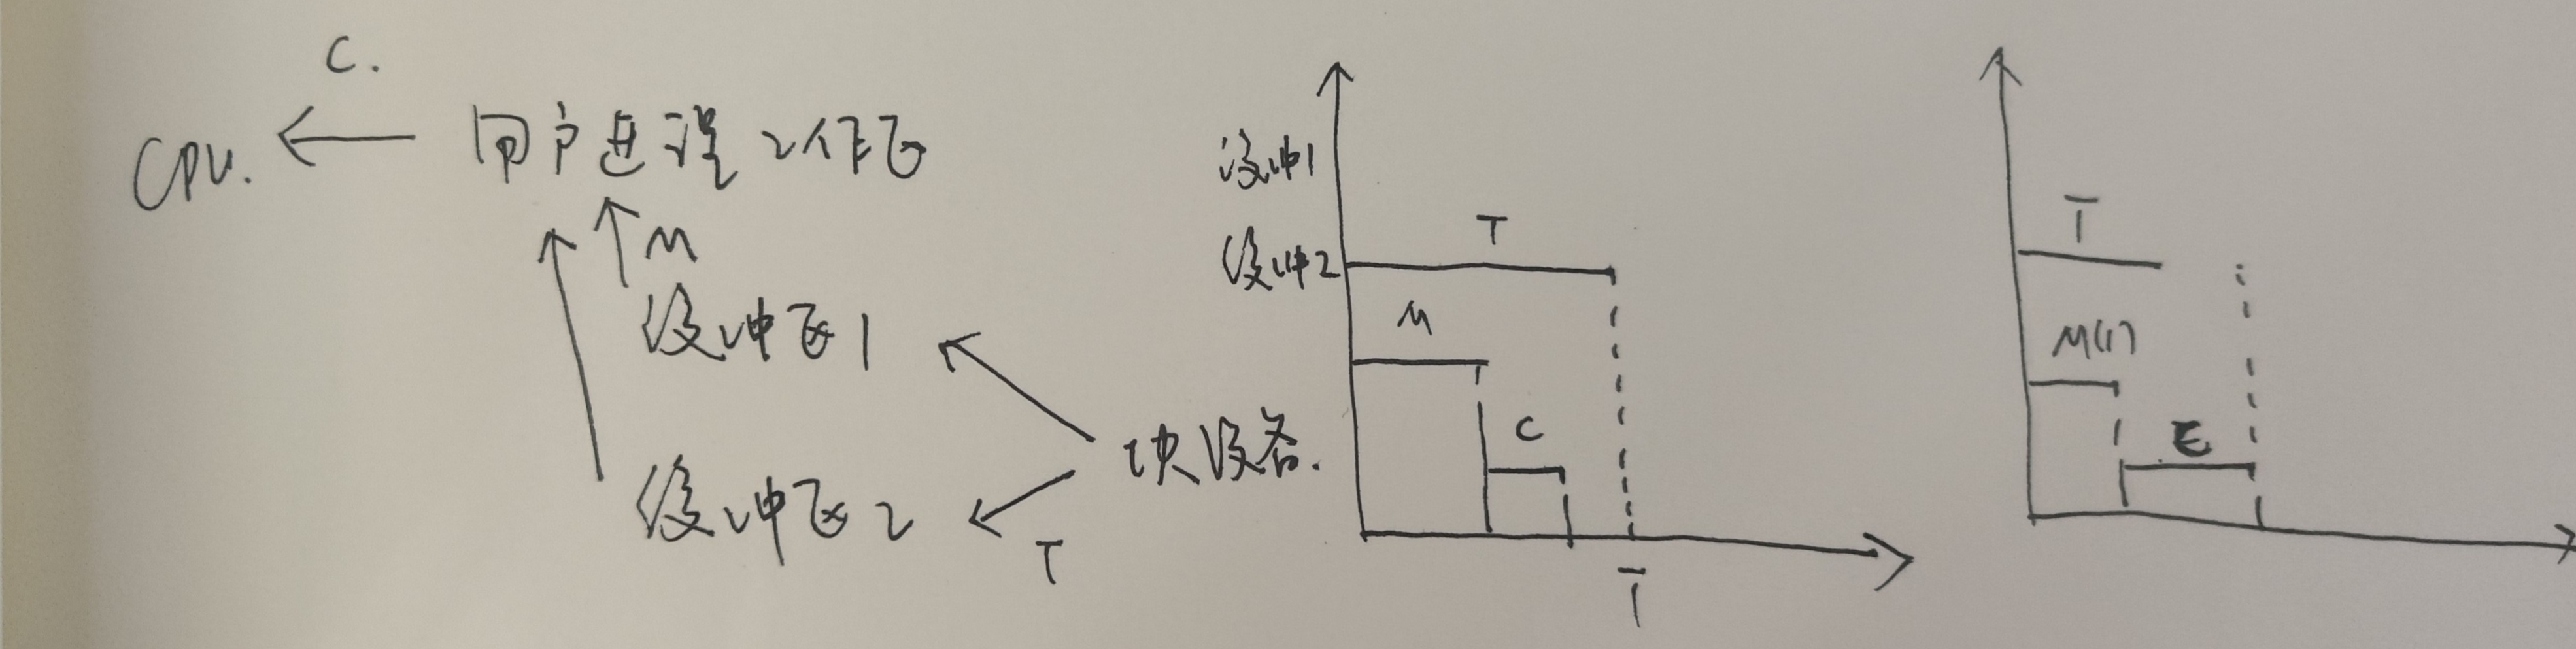 C.
CPU. ← 用户进程工作区
M
缓冲区1
块设备.
缓冲区2
T
缓冲1
缓冲2
T
M
C
T
T
M(1)
C